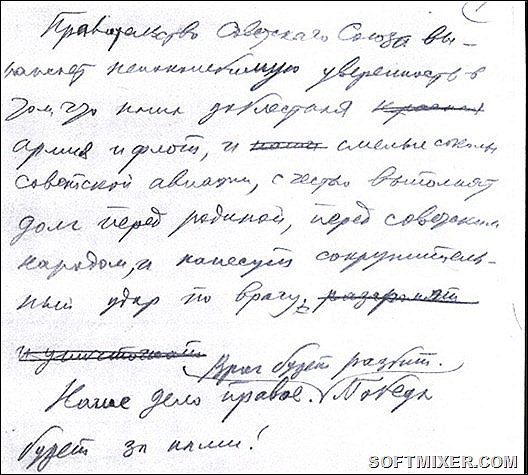 Правительство Советского Союза вы-
ражает непоколебимую уверенность в
том, что наши доблестные красная
армия и флот, и наши смелые соколы
советской авиации, с честью выполнят
долг перед родиной, перед советским
народом, и нанесут сокрушитель-
ный удар по врагу, разгромят
и уничтожат
Враг будет разбит.
Наше дело правое. Победа
будет за нами!
SOFTMIXER.COM